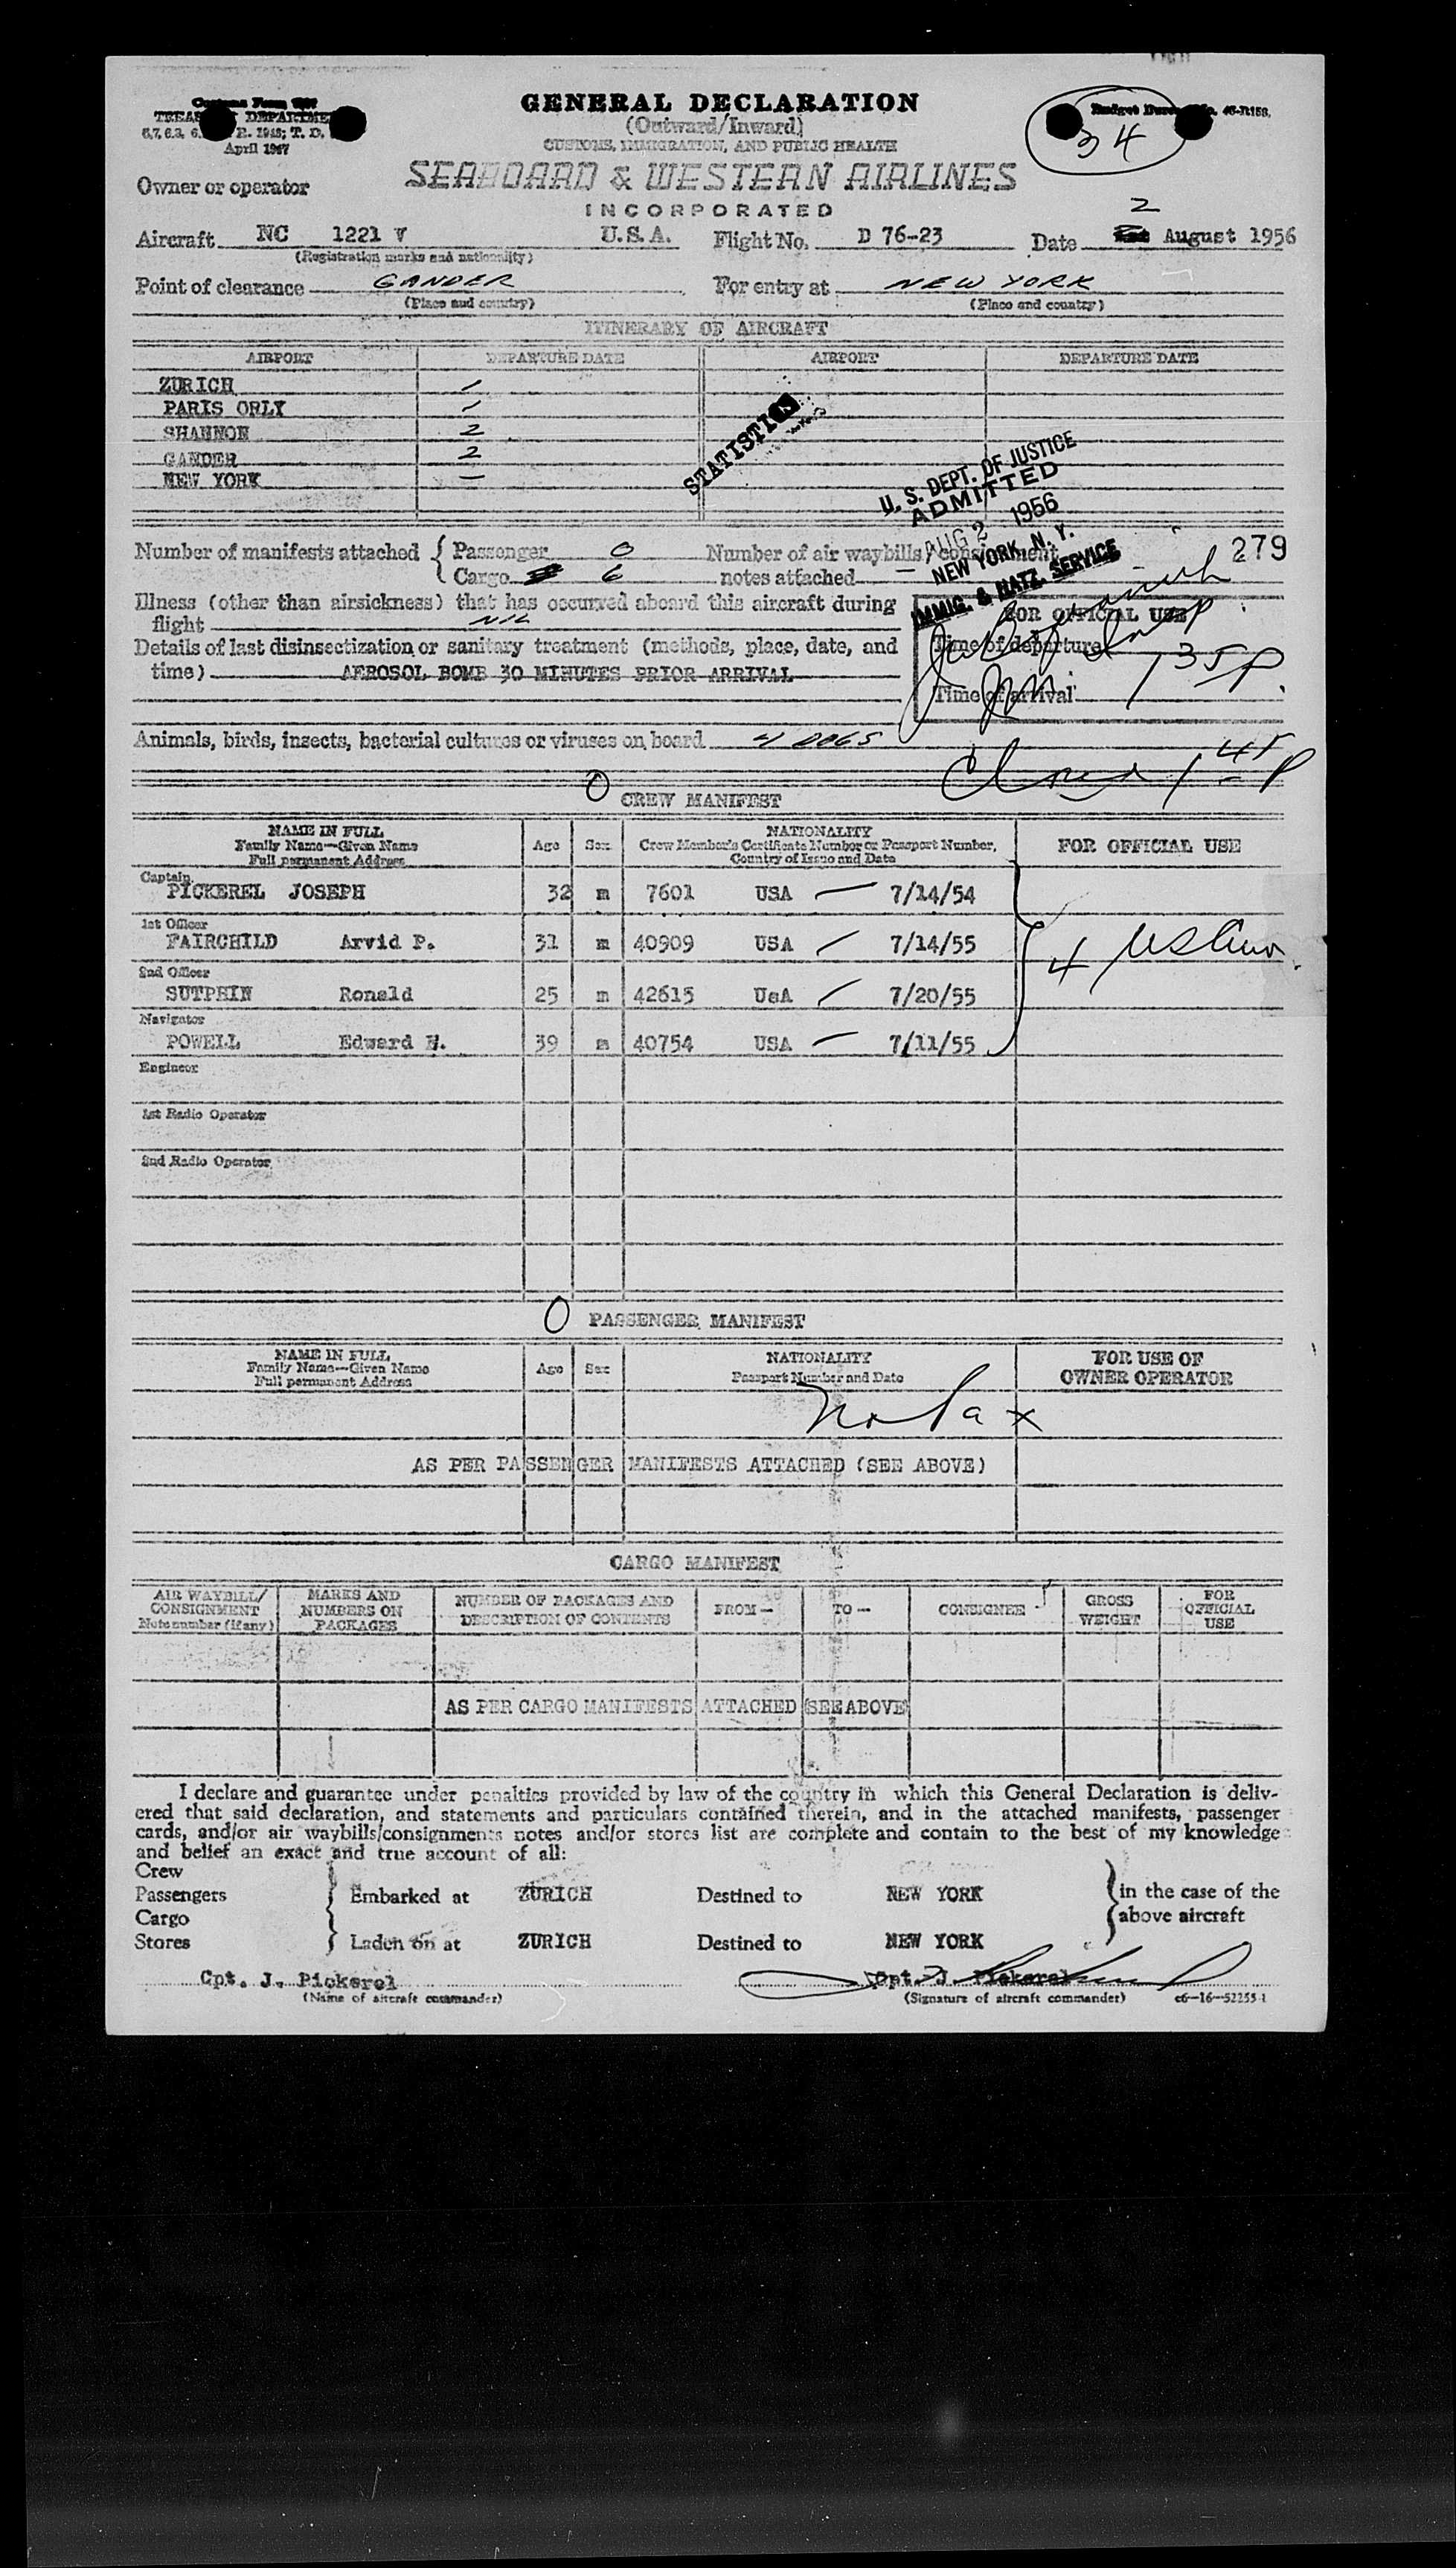 GENERAL DECLARATION
(Outward/Inward)
CUSTOMS, IMMIGRATION, AND PUBLIC HEALTH
Customs Form
TREASURY DEPARTMENT
April 1947
34
Owner or operator SEABOARD & WESTERN AIRLINES
INCORPORATED
2
Aircraft NC 1221 V U.S.A. Flight No. D 76-23 Date August 1956
(Registration marks and nationality)
Point of clearance GANDER For entry at NEW YORK
(Place and country) (Place and country)
ITINERARY OF AIRCRAFT
AIRPORT DEPARTURE DATE AIRPORT DEPARTURE DATE
ZURICH 1
PARIS ORLY 1
SHANNON 2
GANDER 2
NEW YORK —
STATISTICS
U. S. DEPT. OF JUSTICE
ADMITTED
AUG 2 1956
NEW YORK, N. Y.
IMMIG. & NATZ. SERVICE
279
Number of manifests attached { Passenger 0 Number of air waybills/consignment
Cargo 6 notes attached —
Illness (other than airsickness) that has occurred aboard this aircraft during
flight NIL
FOR OFFICIAL USE
Details of last disinsectization or sanitary treatment (methods, place, date, and
time) AEROSOL BOMB 30 MINUTES PRIOR ARRIVAL
Time of departure
Time of arrival 1 35 P.
Animals, birds, insects, bacterial cultures or viruses on board 4 DOGS
Closed 1 45 P
0 CREW MANIFEST
NAME IN FULL
Family Name—Given Name
Full permanent Address
Age Sex
NATIONALITY
Crew Member's Certificate Number or Passport Number,
Country of Issue and Date
FOR OFFICIAL USE
Captain
PICKEREL JOSEPH 32 m 7601 USA — 7/14/54
1st Officer
FAIRCHILD Arvid P. 31 m 40909 USA 7/14/55
4
2nd Officer
SUTPHIN Ronald 25 m 42615 UsA 7/20/55
Navigator
POWELL Edward H. 39 m 40754 USA 7/11/55
Engineer
1st Radio Operator
2nd Radio Operator
0 PASSENGER MANIFEST
NAME IN FULL
Family Name—Given Name
Full permanent Address
Age Sex
NATIONALITY
Passport Number and Date
FOR USE OF
OWNER OPERATOR
No Pax
AS PER PASSENGER MANIFESTS ATTACHED (SEE ABOVE)
CARGO MANIFEST
AIR WAYBILL/
CONSIGNMENT
Note number (if any)
MARKS AND
NUMBERS ON
PACKAGES
NUMBER OF PACKAGES AND
DESCRIPTION OF CONTENTS
FROM—
TO—
CONSIGNEE
GROSS
WEIGHT
FOR
OFFICIAL
USE
AS PER CARGO MANIFESTS ATTACHED (SEE ABOVE)
I declare and guarantee under penalties provided by law of the country in which this General Declaration is deliv-
ered that said declaration, and statements and particulars contained therein, and in the attached manifests, passenger
cards, and/or air waybills/consignments notes and/or stores list are complete and contain to the best of my knowledge
and belief an exact and true account of all:
Crew
Passengers Embarked at ZURICH Destined to NEW YORK in the case of the
Cargo above aircraft
Stores Laden on at ZURICH Destined to NEW YORK
Cpt. J. Pickerel Cpt. J. Pickerel
(Name of aircraft commander) (Signature of aircraft commander) c6—16—52255-1